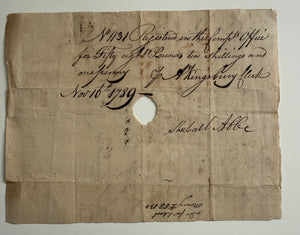 No 1131 Registered in the Compts Office
for Fifty eight Pounds ten Shillings and
one penny pr A Kingsbury Clerk
Novr 16th 1789
Shubael Abbe